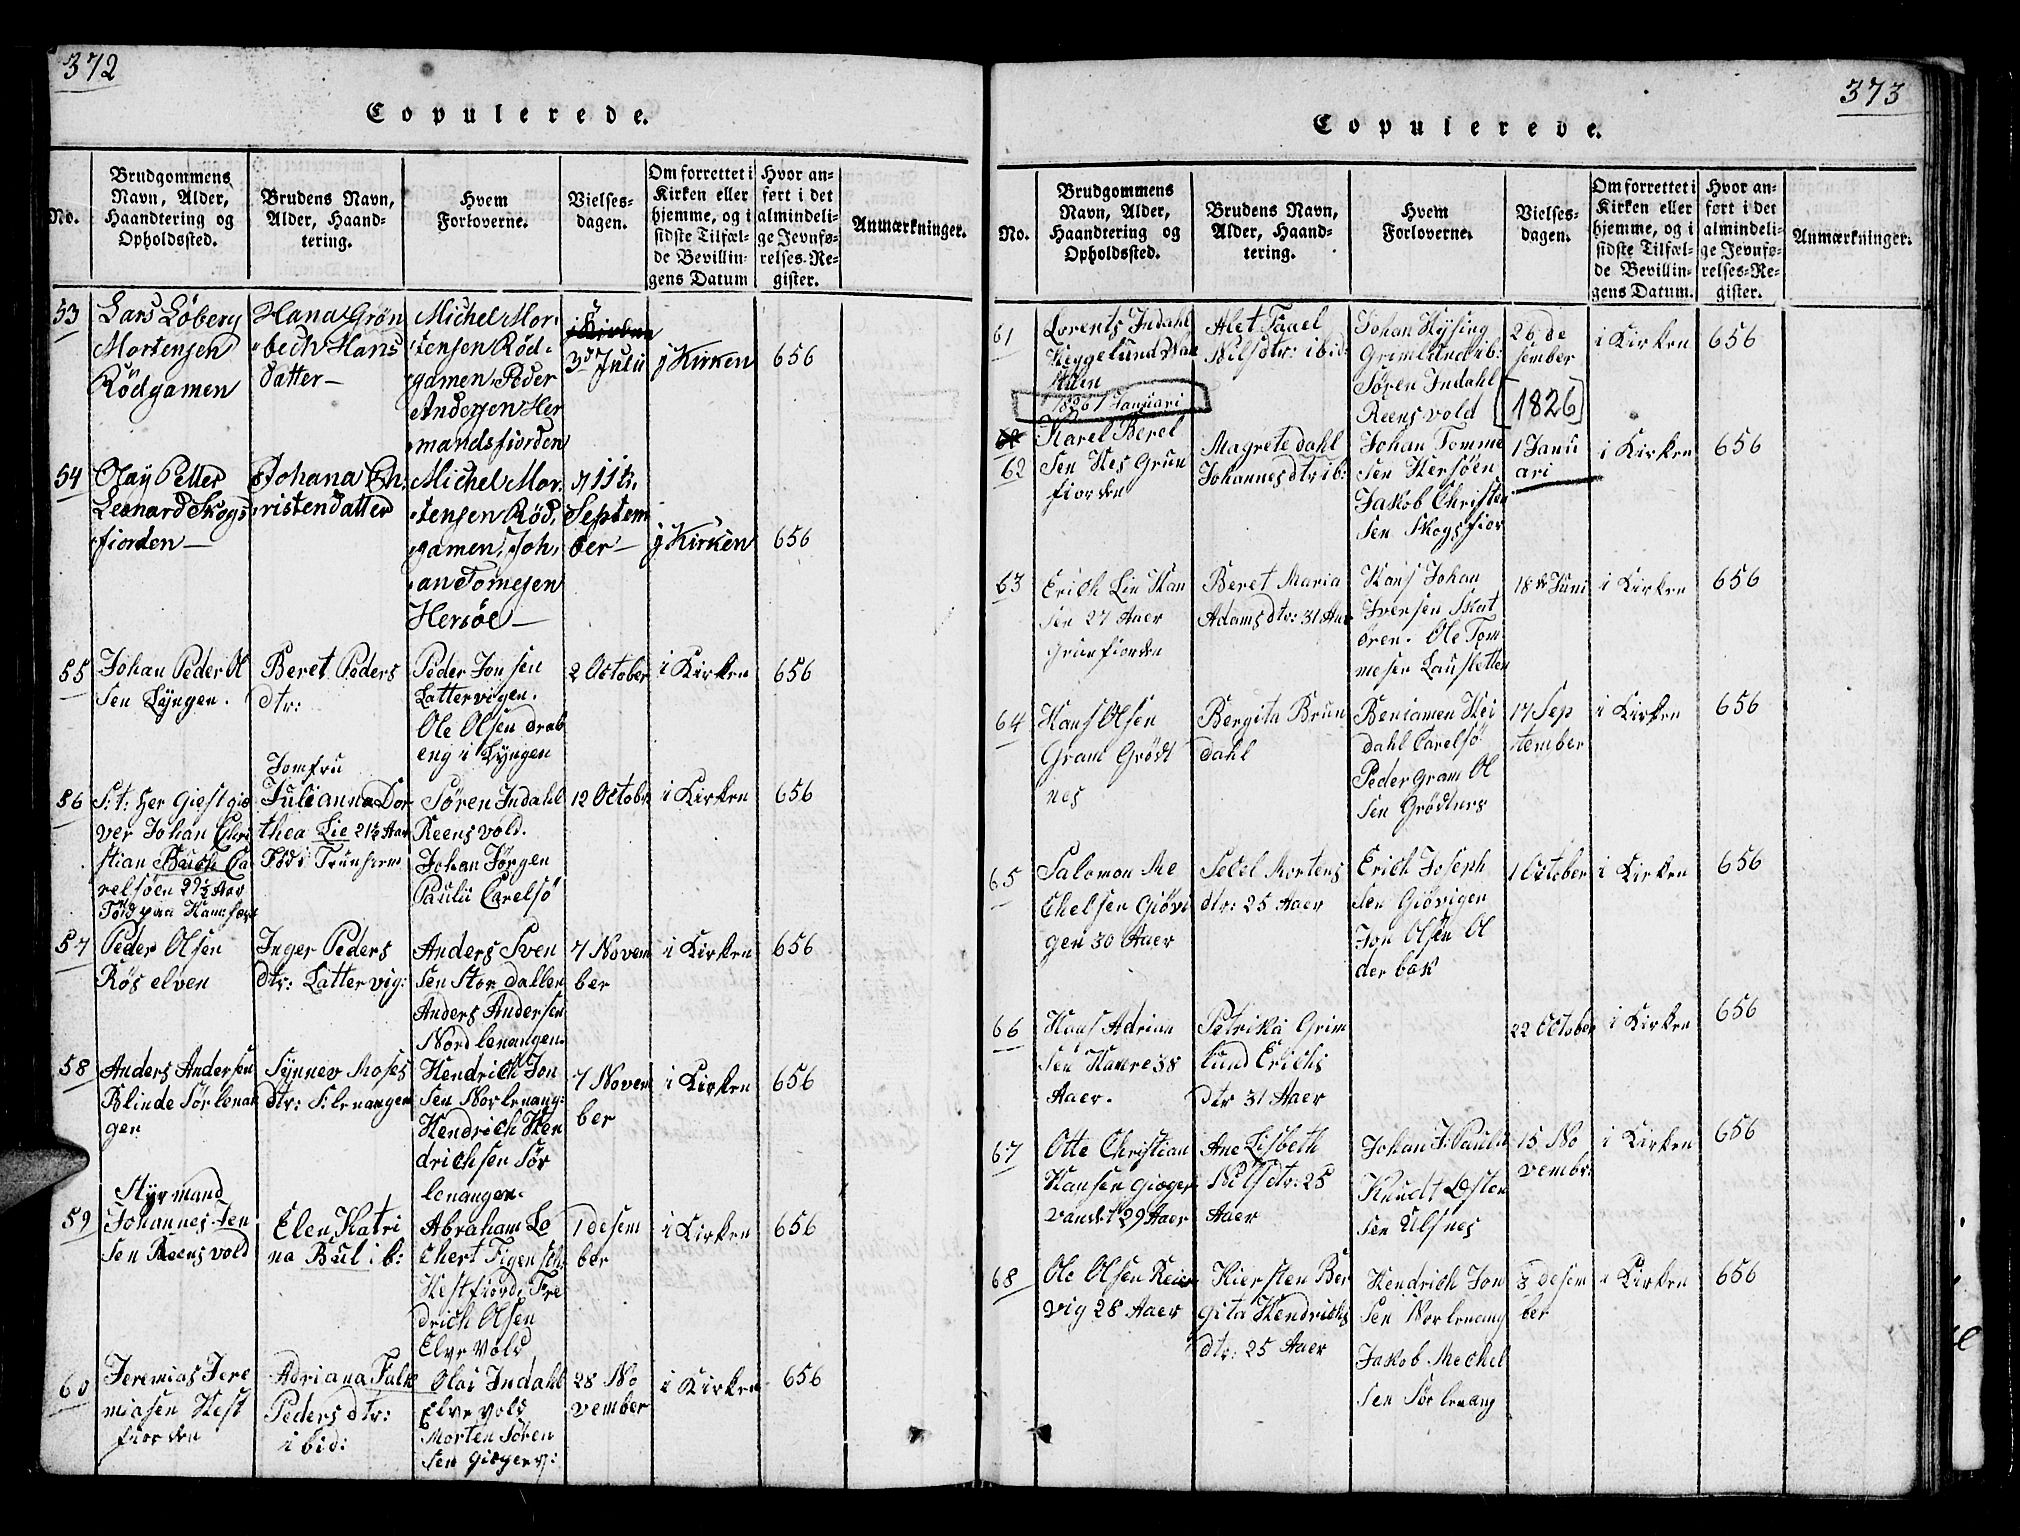 372
Copulerede.
No.
Brudgommens
Navn, Alder,
Haandtering og
Opholdssted.
Brudens Navn,
Alder, Haand-
tering.
Hvem
Forloverne.
Vielses-
dagen.
Om forrettet i
Kirken eller
hjemme, og i
sidste Tilfæl-
de Bevillin-
gens Datum
Hvor an-
ført i det
almindeli-
ge Jevnfø-
relses-Re-
gister.
Anmærkninger.
53
Lars Löberg
Mortensen
Rödgamen
Hana Grön
bech Hans
datter
Michel Mor
tensen Röd
gamen, Peder
Andersen Her
mandsfiorden
i Kirken
3d Julii
j Kirken
656
54
Olay Petter
Leonard Skogs
fiorden
Johana Ch
ristendatter
Michel Mor
tensen Röd
gamen, Joh
an Tomesen
Hersöe
Septem
ber
j Kirken
656
55
Johan Peder Ol
sen Lyngen.
Beret Peders
dtr:
Peder Jonsen
Lattervigen.
Ole Olsen drab
eng i Lyngen
2 October
i Kirken
656
56
S:t: Her Giestgie
ver Johan Chri
stian Bach Ca
relsöen 29½ Aar
Född paa Hamsört
Jomfru
Julianna Dor
thea Lie 21½ Aar
Född i Trunhiem
Sören Indahl
Reensvold.
Johan Jörgen
Paulii Carelsö
12 October
i Kirken
656
57
Peder Olsen
Rös elven
Inger Peders
dtr: Lattervig:
Anders Sven
sen Stordallen
Anders Andersen
Nordlenangen.
7 Novem
ber
i Kirken
656
58
Anders Andersen
Blinde Sörlenan
gen
Synnev Moses
dtr: S:lenangen
Hendrich Jon
sen Norlenang:
Hendrich Hen
drichsen Sör
lenangen.
7 Novem
ber
i Kirken
656
59
Styrmand
Johannes Jen
sen Reensvold
Elen Katri
na Bul i b:
Abraham Lo
Hestfiord. Fre
drich Olsen
Elvevold
1 desem
ber
i Kirken
656
60
Jeremias Jere
miasen Hest
fiorden
Adriana Falk
Peders dtr:
ibid:
Olai Indahl
Elvevold
Morten Sören
sen Giögerv:
28 No
vember
i Kirken
656
373
Copulerede.
No.
Brudgommens
Navn, Alder,
Haandtering og
Opholdssted.
Brudens Navn,
Alder, Haand-
tering.
Hvem
Forloverne.
Vielses-
dagen.
Om forrettet i
Kirken eller
hjemme, og i
sidste Tilfæl-
de Bevillin-
gens Datum.
Hvor an-
ført i det
almindeli-
ge Jevnfø-
relses-Re-
gister.
Anmærkninger.
61
Lorents Indahl
Heggelund
Alet Fauel
Nilsdtr: ibid:
Johan Hysing
Grimlund ib:
Sören Indahl
Reensvold
26 de
sember
i Kirken
656
1826 1 Januari
[1826]
62
Karel Berel
sen Hes Grun
fiorden
Magrete dahl
Johannesdtr ib:
Johan Tomme
sen Hersöen
Jakob Christen
sen Skogsfior
1 Janu
ari
i Kirken
656
63
Erich Lin Han
sen 27 Aaer
Grunfiorden
Beret Maria
Adamsdtr: 31 Aaer
Hans Johan
Iversen Skat
ören. Ole Tom
mesen Lausletten
18de Juni
i Kirken
656
64
Hans Olsen
Gram Grödt
nes
Bergita Brun
dahl
Beniamen Hei
dahl Carelsö
Peder Gram Ol
sen Grödtnes
17 Sep
tember
i Kirken
656
65
Salomon Me
chelsen Giövi
gen 30 Aaer
Secel Mortens
dtr: 25 Aaer
Erich Joseph
sen Giövigen
Jon Olsen Ol
derbak
1 October
i Kirken
656
66
Hans Adrian
sen Hamre 38
Aaer.
Petrika Grim
lund Erichs
dtr 31 Aaer
22 October
i Kirken
656
67
Otte Christian
Hansen Giöger
vandet 29 Aaer
Ane Lisbeth
Nilsdtr: 25
Aaer
Johan J: Paulii
Knudt Östen
sen Ulsnes
15 No
vembr:
i Kirken
656
68
Ole Olsen Reier
vig 28 Aaer
Kiersten Ber
gita Hendrichs
dtr: 25 Aaer
Hendrich Jon
sen Norlenang
Jakob Mechel
sen Sörlenang
3 desem
ber
i Kirken
656